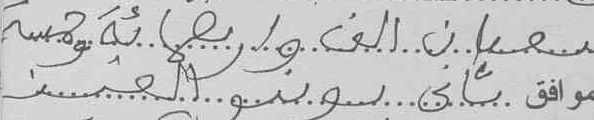 شعبان الف واربعمائة وخمسة
موافق ثاني يونيو الفين